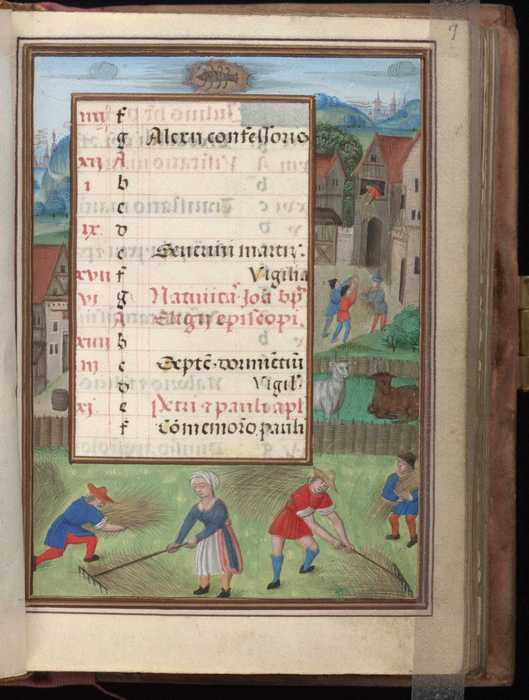 7
iiij f
g Alexii confessoris
xij A
i b
c
ix d
e Seuerini martir.
xvii f Vigilia
vi g Natiuita. Joh. bpt
A Eligii episcopi.
xiiii b
iij c Septē. dormiētiū
d Vigil'
xi e Petri et pauli apl
f Cōmemorō. pauli